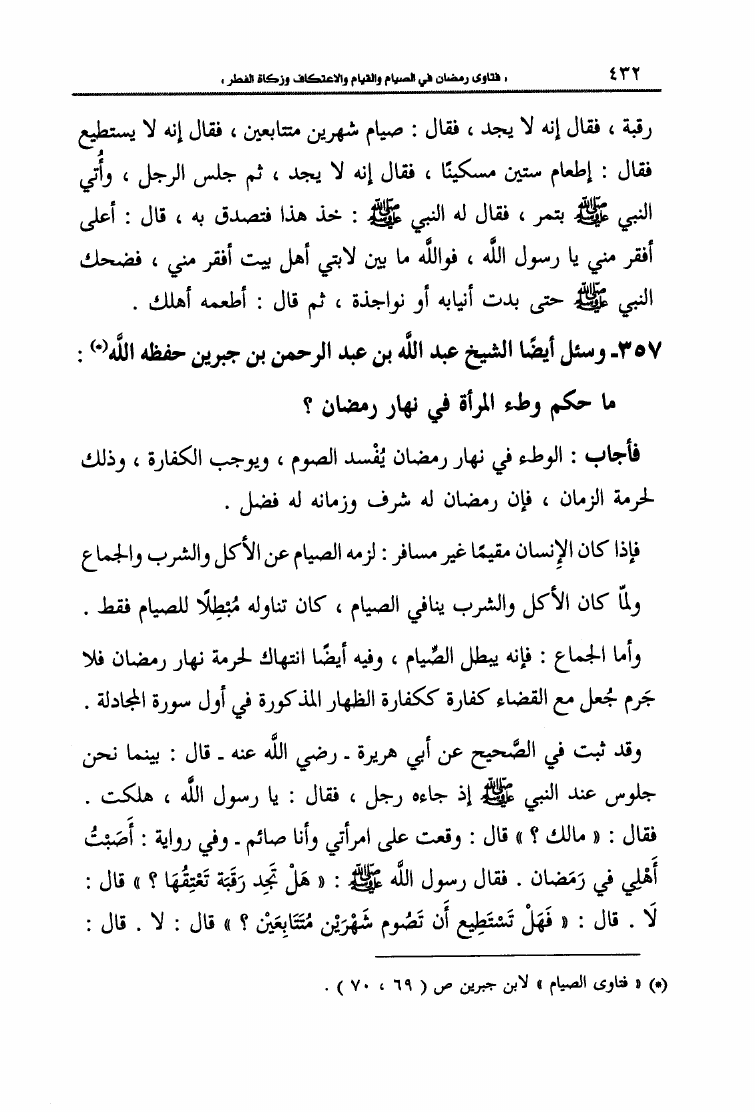 ٤٣٢ « فتاوى رمضان في الصيام والقيام والاعتكاف وزكاة الفطر »
رقبة ، فقال إنه لا يجد ، فقال : صيام شهرين متتابعين ، فقال إنه لا يستطيع
فقال : إطعام ستين مسكينًا ، فقال إنه لا يجد ، ثم جلس الرجل ، وأُتي
النبي ﷺ بتمر ، فقال له النبي ﷺ : خذ هذا فتصدق به ، قال : أعلى
أفقر مني يا رسول اللَّه ، فواللَّه ما بين لابتي أهل بيت أفقر مني ، فضحك
النبي ﷺ حتى بدت أنيابه أو نواجذة ، ثم قال : أطعمه أهلك .
٣٥٧ـ وسئل أيضًا الشيخ عبد اللَّه بن عبد الرحمن بن جبرين حفظه اللَّه(*) :
ما حكم وطء المرأة في نهار رمضان ؟
فأجاب : الوطء في نهار رمضان يُفْسد الصوم ، ويوجب الكفارة ، وذلك
لحرمة الزمان ، فإن رمضان له شرف وزمانه له فضل .
فإذا كان الإنسان مقيمًا غير مسافر : لزمه الصيام عن الأكل والشرب والجماع
ولمّا كان الأكل والشرب ينافي الصيام ، كان تناوله مُبْطِلًا للصيام فقط .
وأما الجماع : فإنه يبطل الصِّيام ، وفيه أيضًا انتهاك لحرمة نهار رمضان فلا
جَرم جُعل مع القضاء كفارة ككفارة الظهار المذكورة في أول سورة المجادلة .
وقد ثبت في الصَّحيح عن أبي هريرة ـ رضي اللَّه عنه ـ قال : بينما نحن
جلوس عند النبي ﷺ إذ جاءه رجل ، فقال : يا رسول اللَّه ، هلكت .
فقال : « مالك ؟ » قال : وقعت على امرأتي وأنا صائم ـ وفي رواية : أَصَبْتُ
أَهْلِي في رَمَضان . فقال رسول اللَّه ﷺ : « هَلْ تَجِد رَقَبَة تَعْتِقُهَا ؟ » قال :
لَا . قال : « فَهَلْ تَسْتَطِيع أَن تَصُوم شَهْرَيْن مُتَتَابِعَيْن ؟ » قال : لا . قال :
(*) « فتاوى الصيام » لابن جبرين ص ( ٦٩ ، ٧٠ ) .